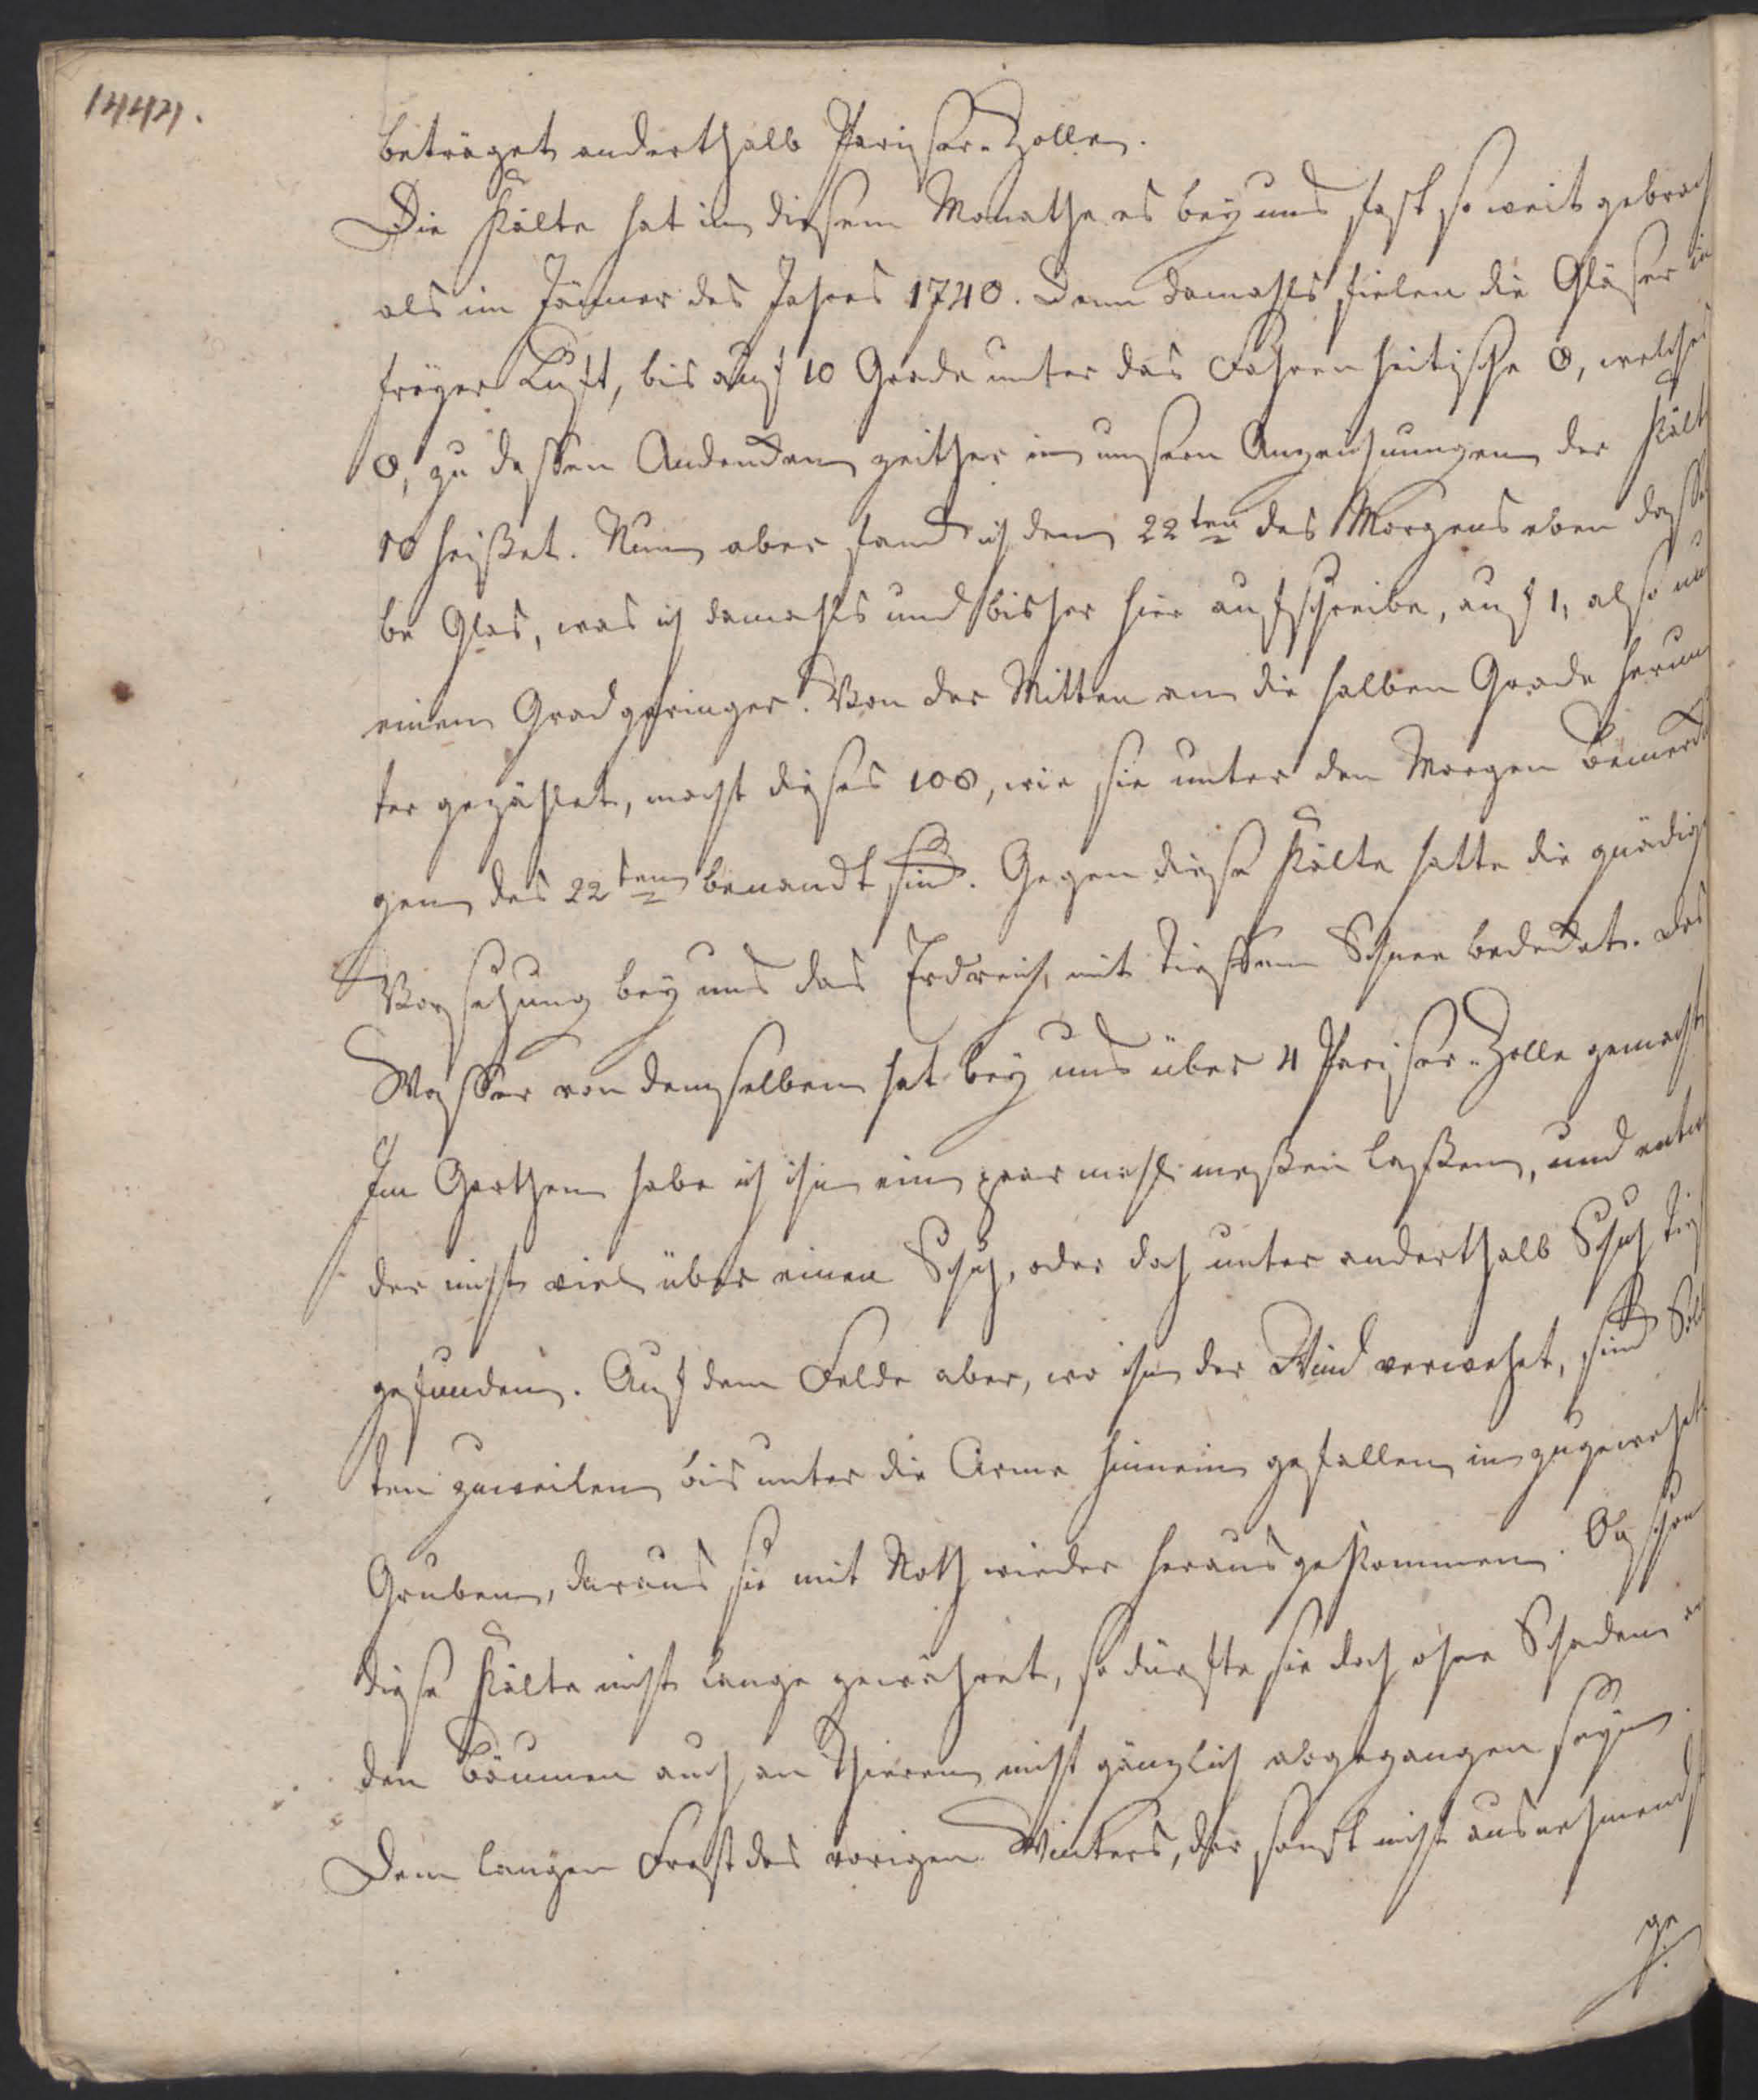 1444.
beträget anderthalb Pariser-Zolle.
Die Kälte hat in diesem Monathe es bey uns fast so weit gebrach
als im Jänner des Jahres 1740. Denn damahls fielen die Gläser in
freyer Luft, bis auf 10 Grade unter das Fahrenheitische 0, welches
0, zu dessen Andencken zeither in unsern Anzeichnungen der Kält
10 heißet. Nun aber fand ich den 22ten des Morgens eben dassel
be Glas, was ich damahls und bisher hier aufschreibe, auf 1, also um
einen Grad geringer. Von der Mitten an die halben Grade herun
ter gezählet, macht dieses 108, wie sie unter den Morgen
gen des 22ten benandt sind. Gegen diese Kälte hatte die gnädige
Vorsehung bey uns das Erdreich, mit tieffem Schnee bedecket. Das
Wasser von demselben hat bey uns über 4 Pariser-Zolle gemacht
Im Garthen habe ich ihn ein paar mahl meßen laßen, und entwe
der nicht viel über einen Schuh, oder doch unter anderthalb Schuh tief
gefunden. Auf dem Felde aber, wo ihn der Wind verwehet, sind Sol
ten zuweilen bis unter die Arme hinnein gefallen, in zugewehete
Gruben, daraus sie mit Noth wieder heraus gekommen. Ob schon
diese Kälte nicht lange gewähret, so dürfte sie doch ohne Schaden an
den Bäumen auch an Thieren nicht gänzlich abgegangen seyn.
Dem langen Frost des vorigen Winters, der sonst nicht ausnehmend
ge